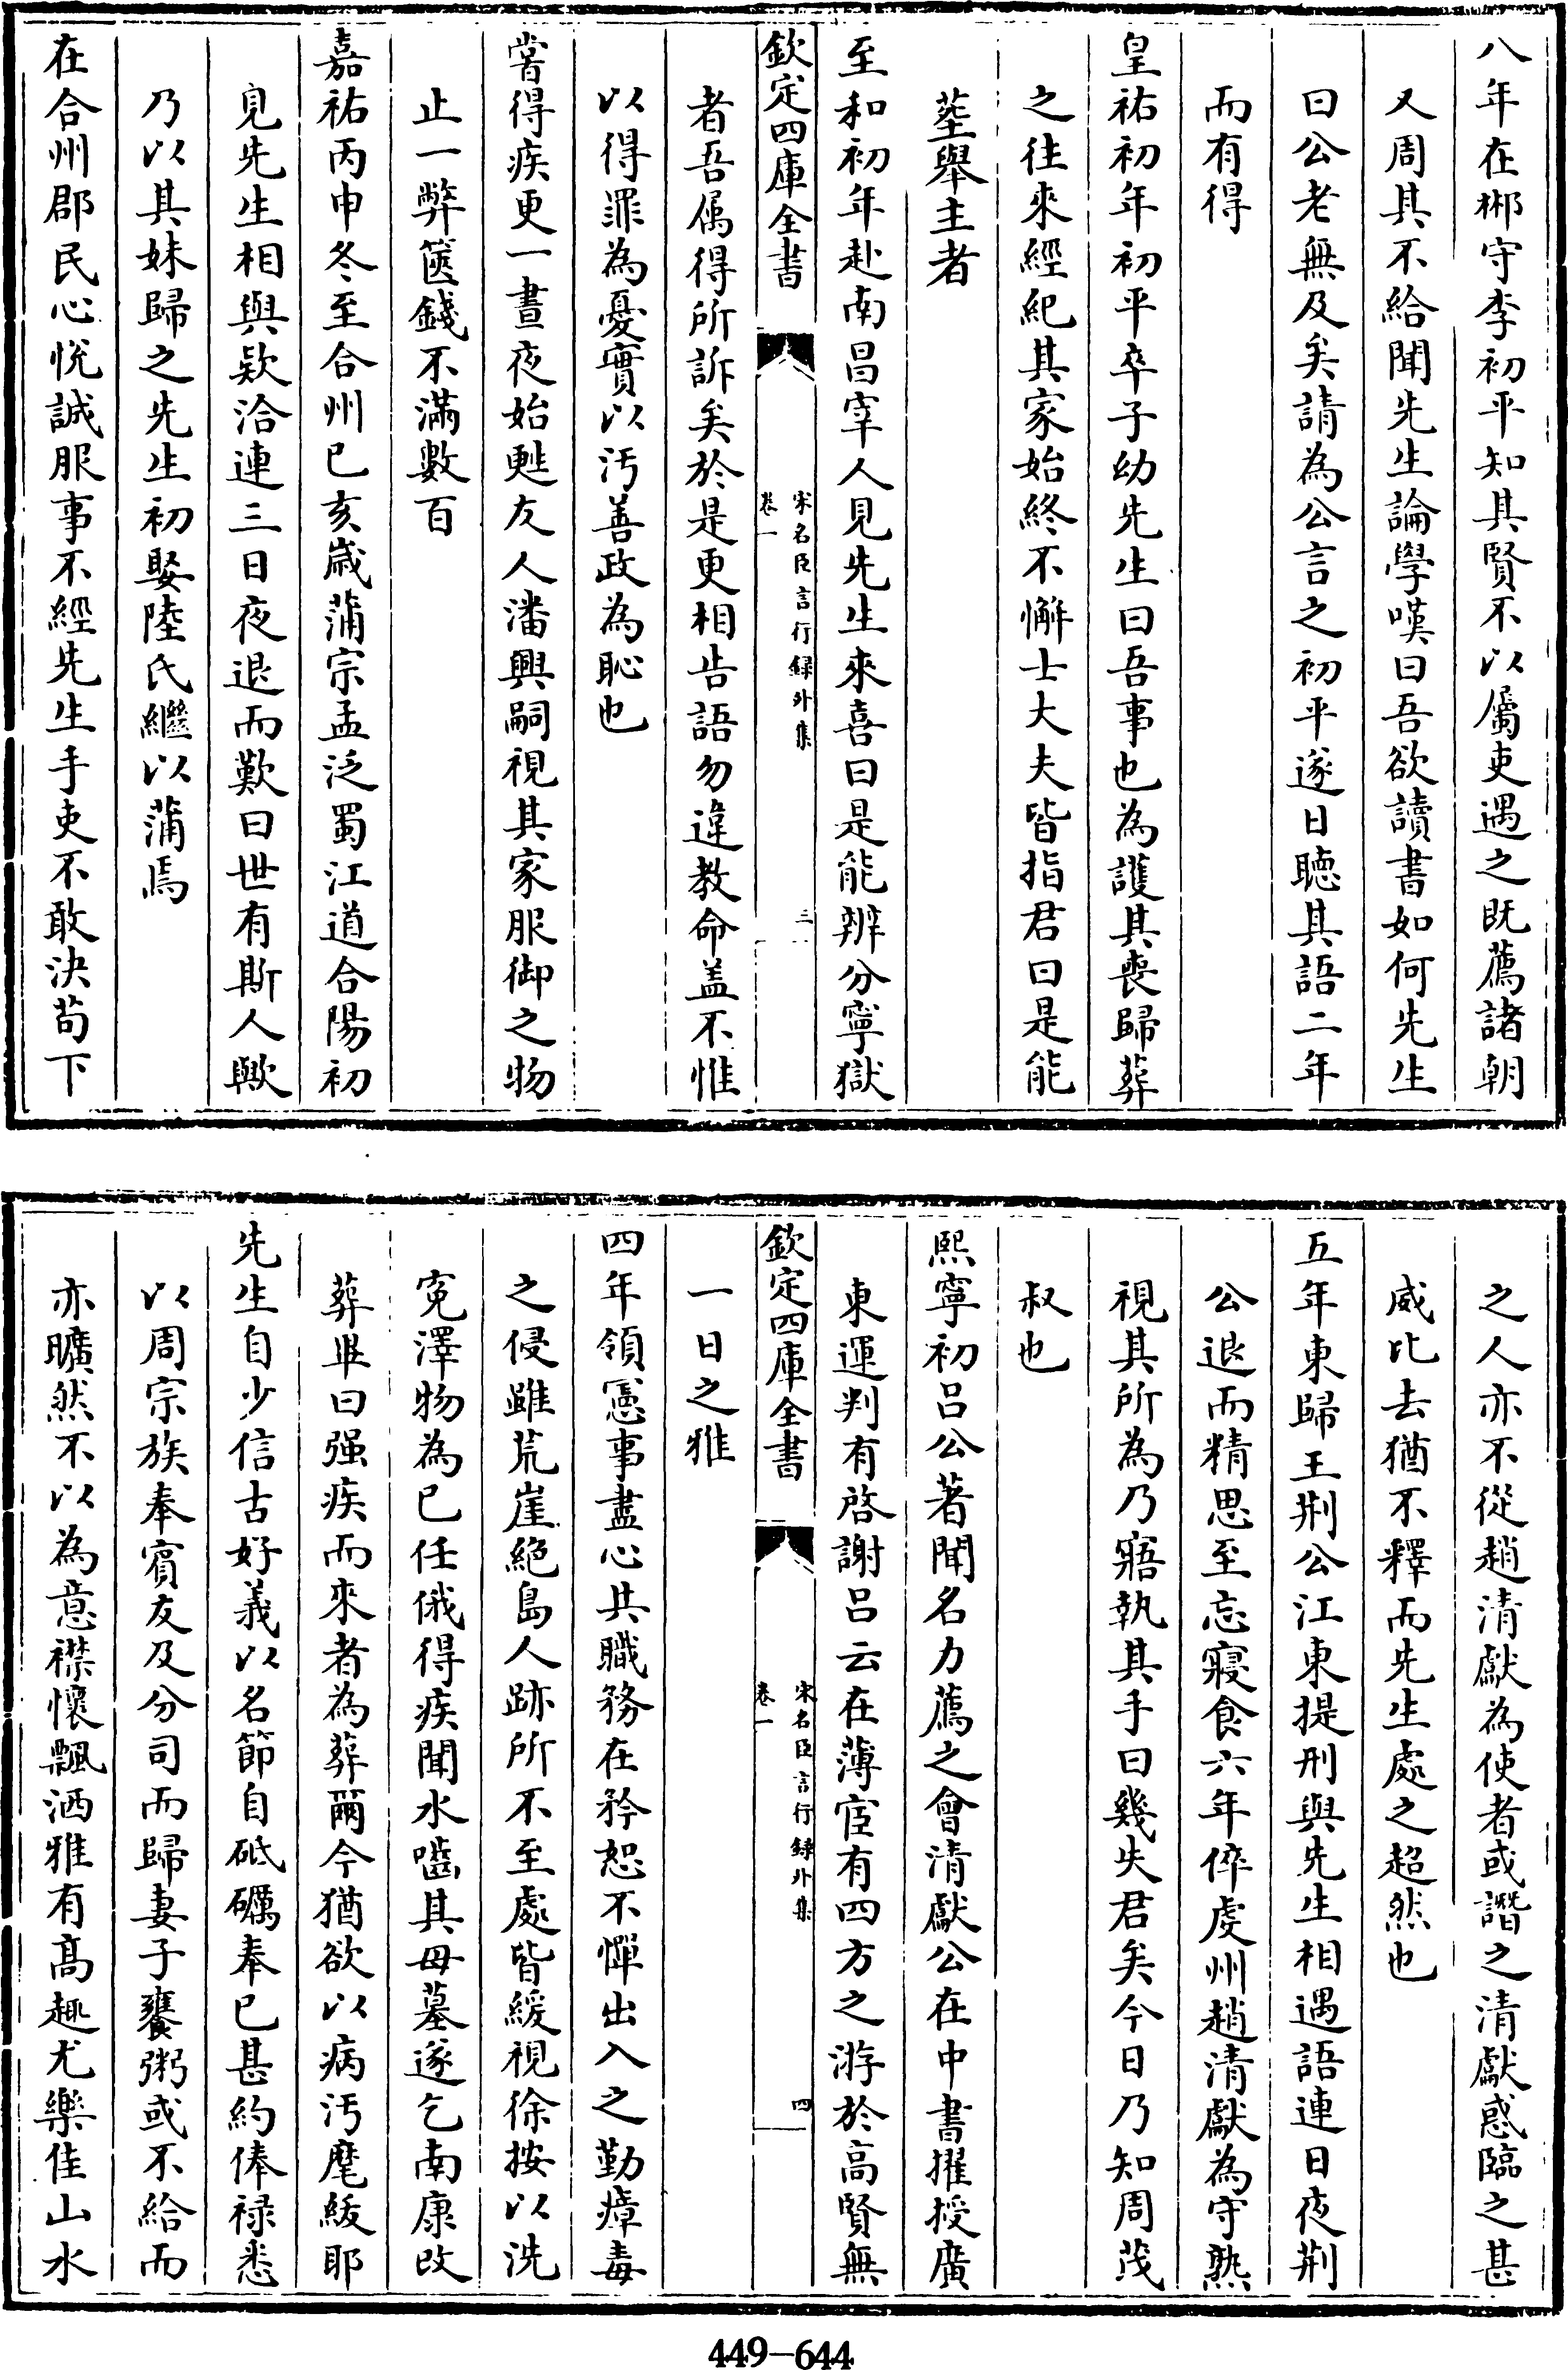 八年在郴守李初平知其賢不以屬吏遇之既薦諸朝
又周其不給聞先生論學嘆曰吾欲讀書如何先生
曰公老無及矣請為公言之初平遂日聽其語二年
而有得
皇祐初年初平卒子幼先生曰吾事也為護其喪歸葬
之往來經紀其家始終不懈士大夫皆指君曰是能
塟舉主者
至和初年赴南昌宰人見先生來喜曰是能辨分寧獄
欽定四庫全書
宋名臣言行録外集
卷一
三
者吾属得所訴矣於是更相告語勿違教命盖不惟
以得罪為憂實以汚善政為恥也
嘗得疾更一晝夜始甦友人潘興嗣視其家服御之物
止一弊篋錢不滿數百
嘉祐丙申冬至合州已亥歳蒲宗孟泛蜀江道合陽初
見先生相與欵洽連三日夜退而歎曰世有斯人歟
乃以其妹歸之先生初娶陸氏繼以蒲焉
在合州郡民心悅誠服事不經先生手吏不敢決茍下
之人亦不從趙清獻為使者或譖之清獻惑臨之甚
威比去猶不釋而先生處之超然也
五年東歸王荆公江東提刑與先生相遇語連日夜荆
公退而精思至忘寢食六年倅虔州趙清獻為守熟
視其所為乃寤執其手曰幾失君矣今日乃知周茂
叔也
熙寧初呂公著聞名力薦之會清獻公在中書擢授廣
東運判有啓謝呂云在薄宦有四方之游於高賢無
欽定四庫全書
宋名臣言行録外集
卷一
四
一日之雅
四年領憲事盡心其職務在矜恕不憚出入之勤瘴毒
之侵雖荒崖絶島人跡所不至處皆緩視徐按以洗
寃澤物為已任俄得疾聞水嚙其母墓遂乞南康改
葬畢曰强疾而來者為葬爾今猶欲以病汚麾紱耶
先生自少信古好義以名節自砥礪奉已甚約俸禄悉
以周宗族奉賓友及分司而歸妻子饔粥或不給而
亦曠然不以為意襟懷飄洒雅有髙趣尤樂佳山水
449-644